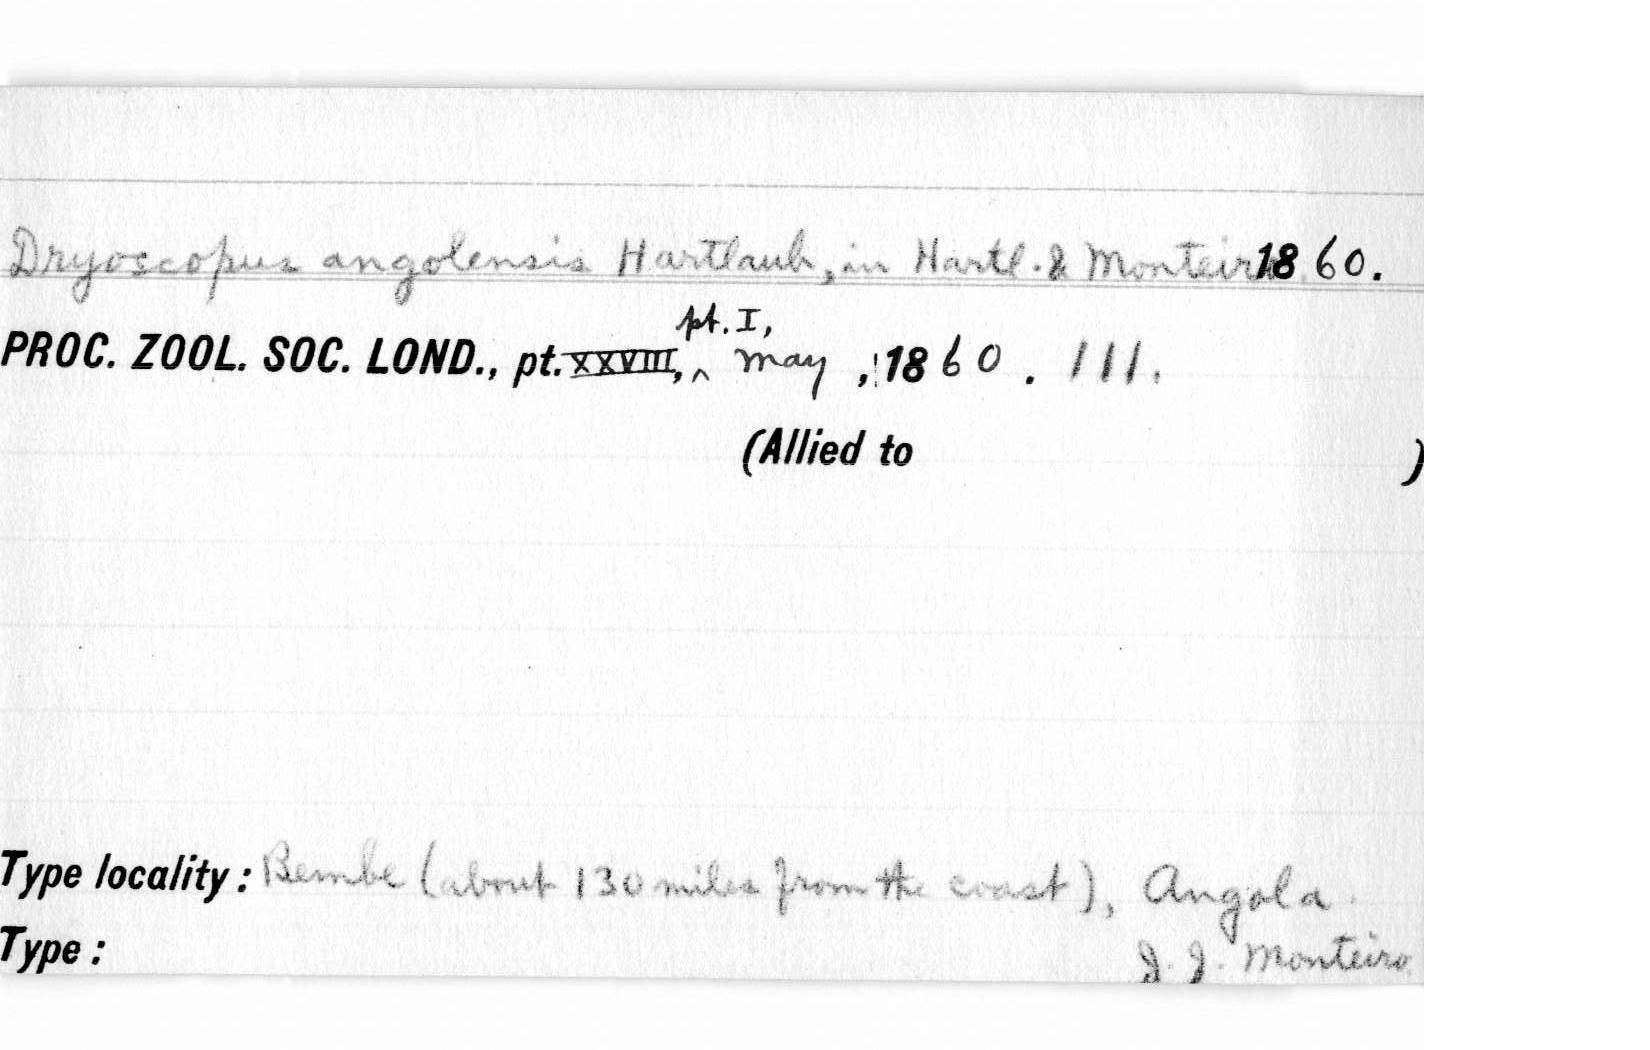 Dryoscopus angolensis Hartlaub, in Hartl. & Monteiro 1860.
pt. I,
PROC. ZOOL. SOC. LOND., pt. XXVIII, ^ May, 1860. 111.
(Allied to )
Type locality: Bembe (about 130 miles from the coast), Angola.
Type: J. J. Monteiro